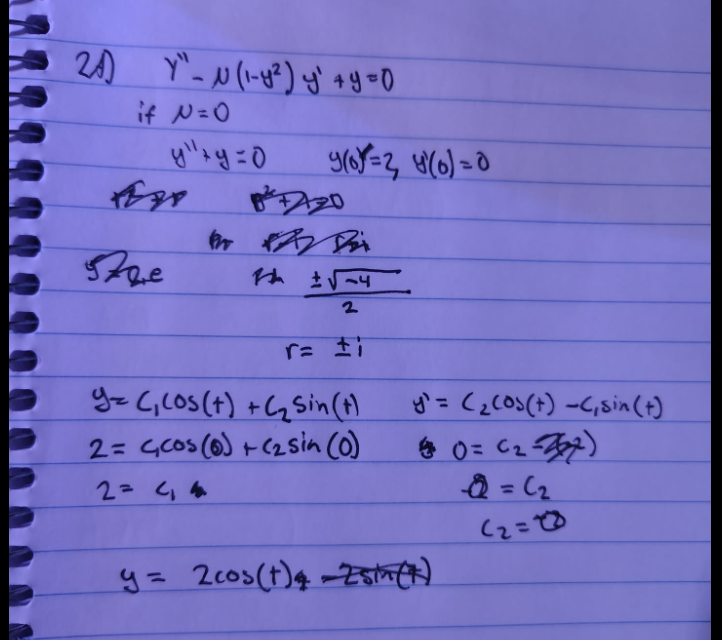 2A) y'' - μ(1-y²) y' + y = 0
if μ=0
y'' + y = 0 y(0)=2, y'(0)=0
±√-4
2
r = ±i
y = C₁cos(t) + C₂sin(t) y' = C₂cos(t) - C₁sin(t)
2 = C₁cos(0) + C₂sin(0) 0 = C₂
2 = C₁ 0 = C₂
C₂ = 0
y = 2cos(t)